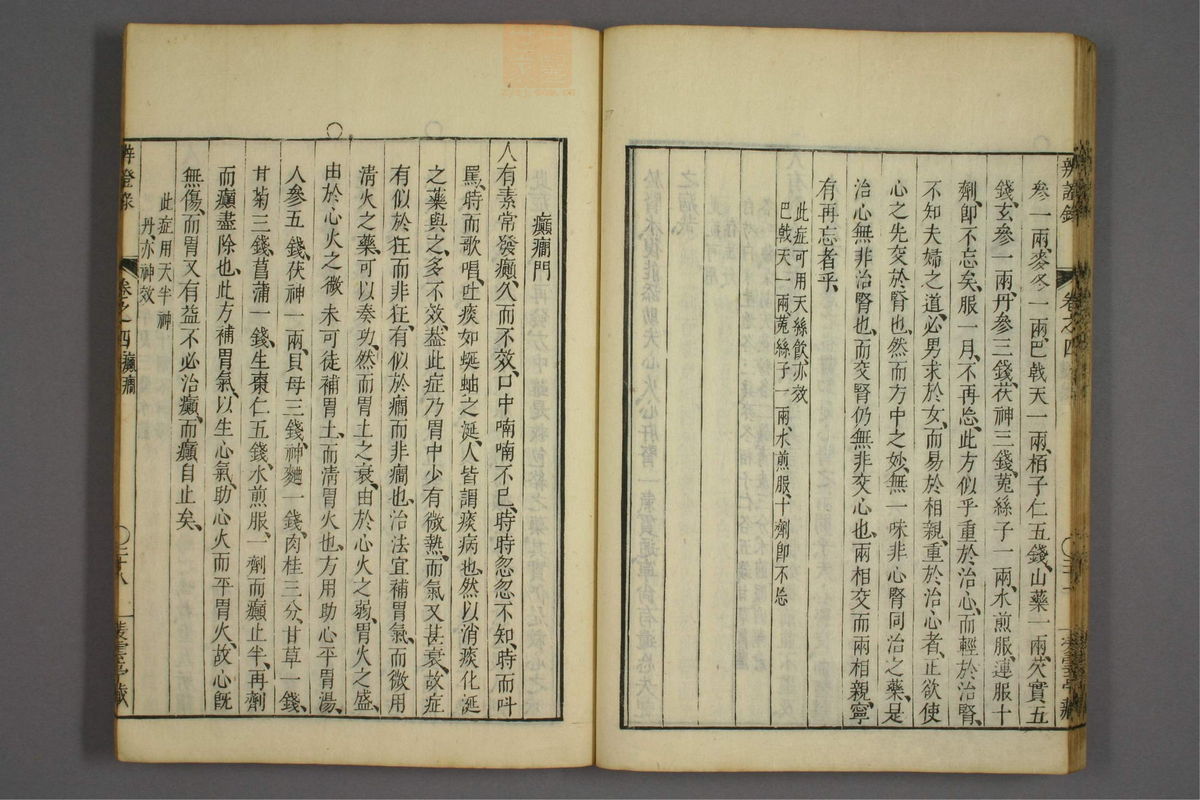 辨證錄
卷之四
參一兩、麥冬一兩、巴戟天一兩、栢子仁五錢、山藥一兩、芡實五
錢、玄參一兩、丹參三錢、茯神三錢、菟絲子一兩、水煎服、連服十
劑、卽不忘矣、服一月、不再忘、此方似乎重於治心、而輕於治腎、
不知夫婦之道、必男求於女、而易於相親、重於治心者、正欲使
心之先交於腎也、然而方中之妙、無一味非心腎同治之藥、是
治心無非治腎也、而交腎仍無非交心也、兩相交而兩相親、寧
有再忘者乎、
此症可用天絲飲、亦效
巴戟天一兩、菟絲子一兩、水煎服、十劑卽不忘
癲癎門
人有素常發癲、久而不效、口中喃喃不已、時時忽忽不知、時而呌
罵、時而歌唱、吐痰如蜒蚰之涎、人皆謂痰病也、然以消痰化涎
之藥與之、多不效、葢此症乃胃中少有微熱、而氣又甚衰、故症
有似於狂而非狂、有似於癎而非癎也、治法宜補胃氣、而微用
清火之藥、可以奏功、然而胃土之衰、由於心火之弱、胃火之盛、
由於心火之微、未可徒補胃土、而清胃火也、方用助心平胃湯、
人參五錢、茯神一兩、貝母三錢、神麯一錢、肉桂三分、甘草一錢、
甘菊三錢、菖蒲一錢、生棗仁五錢、水煎服、一劑而癲止半、再劑
而癲盡除也、此方補胃氣、以生心氣、助心火而平胃火、故心旣
無傷、而胃又有益、不必治癲、而癲自止矣、
此症用天半神
丹亦神效
辨證錄
卷之四癲癎
三十八